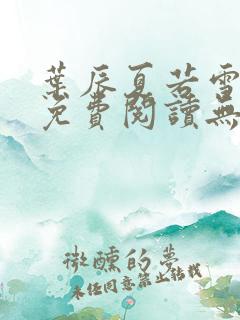 葉辰夏若雪
免費閱讀無
微醺的夢
未經同意禁止轉載